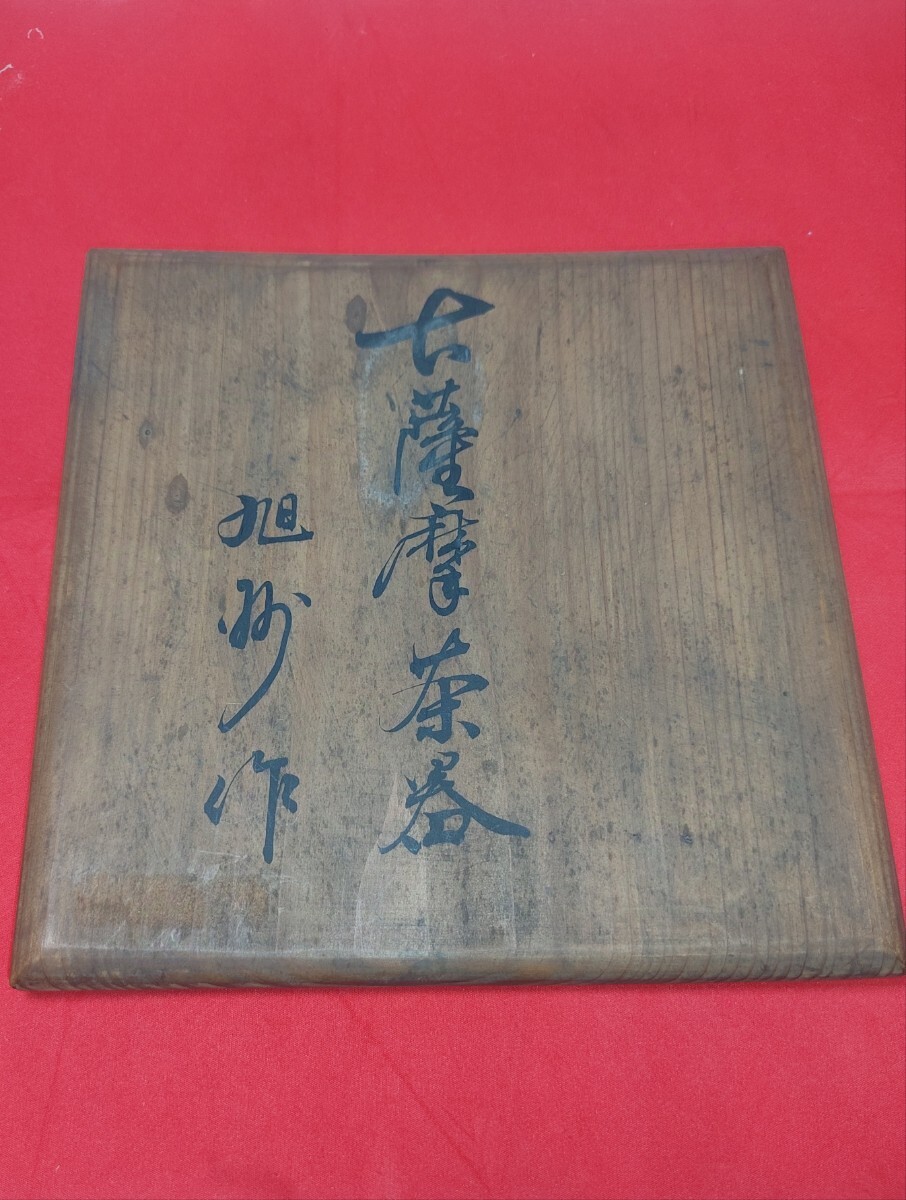 古薩摩茶器
旭州作